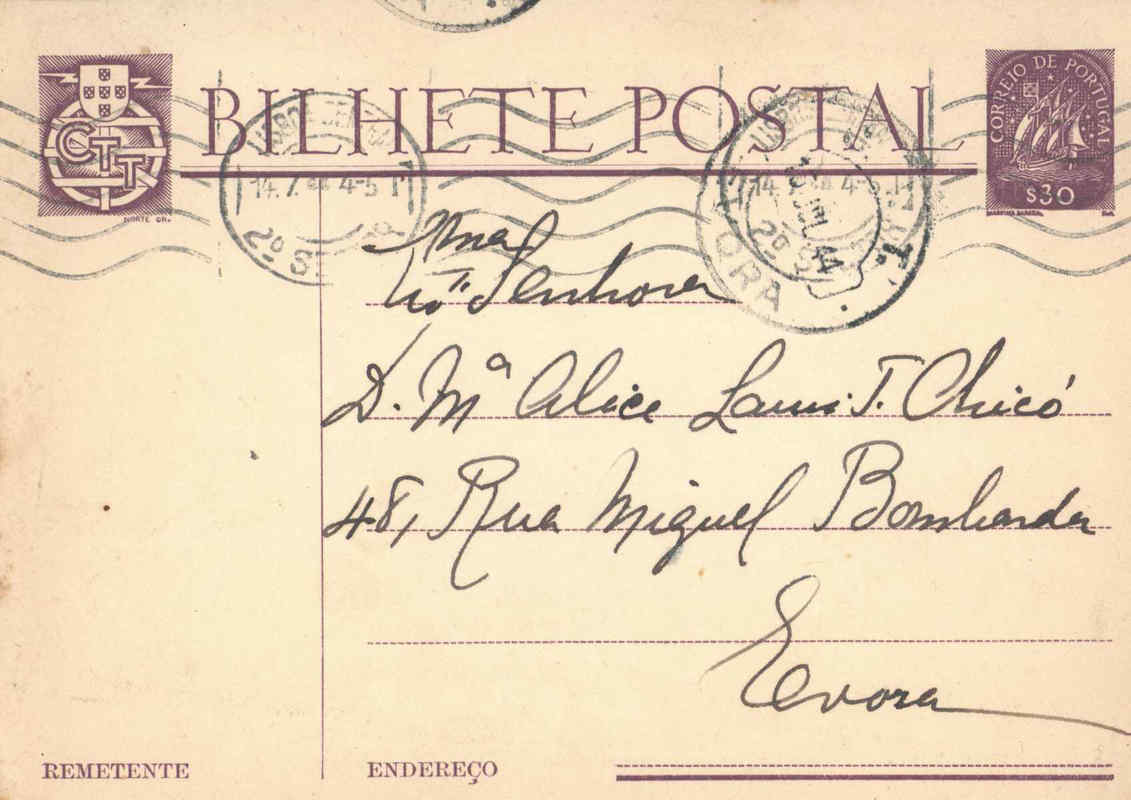 BILHETE POSTAL
CTT
NORTE GR.
CORREIO DE PORTUGAL
$30
14.7.44 4-5
2º S
14 4-5
2º S
ORA
44
Senhora
D. Mª Alice Lami T. Chicó
48, Rua Miguel Bombarda
Evora
REMETENTE
ENDEREÇO